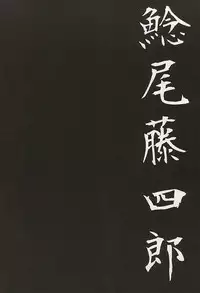 鯰尾藤四郎